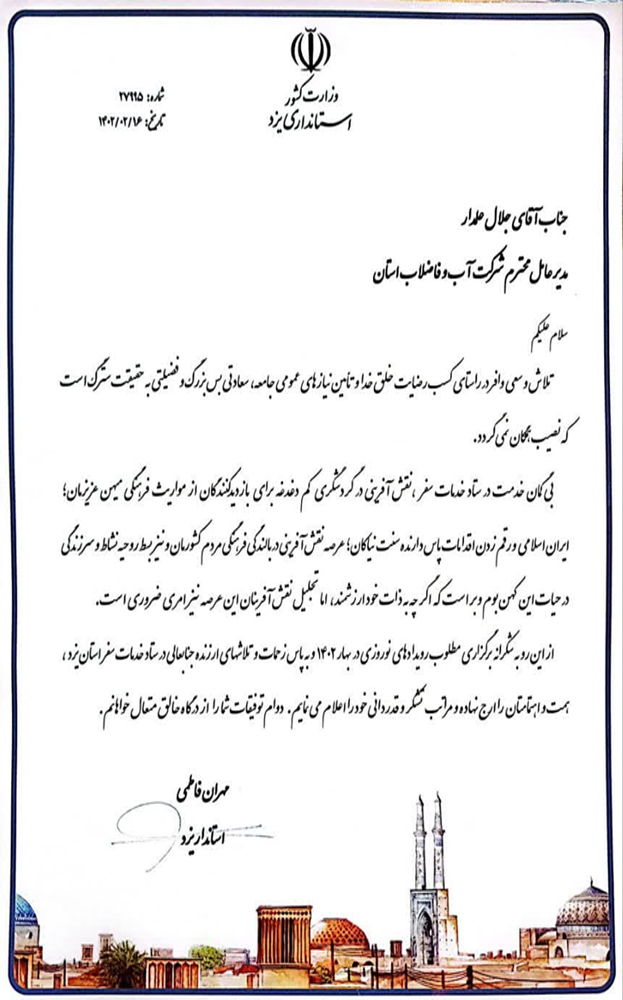 وزارت کشور
استانداری یزد
شماره: ۲۷۹۹۵
تاریخ: ۱۴۰۲/۰۲/۱۶
جناب آقای جلال علمدار
مدیرعامل محترم شرکت آب و فاضلاب استان
سلام علیکم
تلاش و سعی وافر در راستای کسب رضایت خلق خدا و تأمین نیازهای عمومی جامعه، سعادتی بس بزرگ و فضیلتی به حقیقت سترگ است
که نصیب همگان نمی گردد.
بی گمان خدمت در ستاد خدمات سفر، نقش آفرینی در گردشگری کم دغدغه برای بازدیدکنندگان از مواریث فرهنگی میهن عزیزمان؛
ایران اسلامی و رقم زدن اقدامات پاس دارنده سنت نیاکان؛ عرصه نقش آفرینی در بالندگی فرهنگی مردم کشورمان و نیز بسط روحیه نشاط و سرزندگی
در حیات این کهن بوم و بر است که اگر چه به ذات خود ارزشمند، اما تجلیل نقش آفرینان این عرصه نیز امری ضروری است.
از این رو به شکرانه برگزاری مطلوب رویدادهای نوروزی در بهار ۱۴۰۲ و به پاس زحمات و تلاشهای ارزنده جنابعالی در ستاد خدمات سفر استان یزد،
همت و اهتمامتان را ارج نهاده و مراتب تشکر و قدردانی خود را اعلام می نمایم. دوام توفیقات شما را از درگاه خالق متعال خواهانم.
مهران فاطمی
استاندار یزد